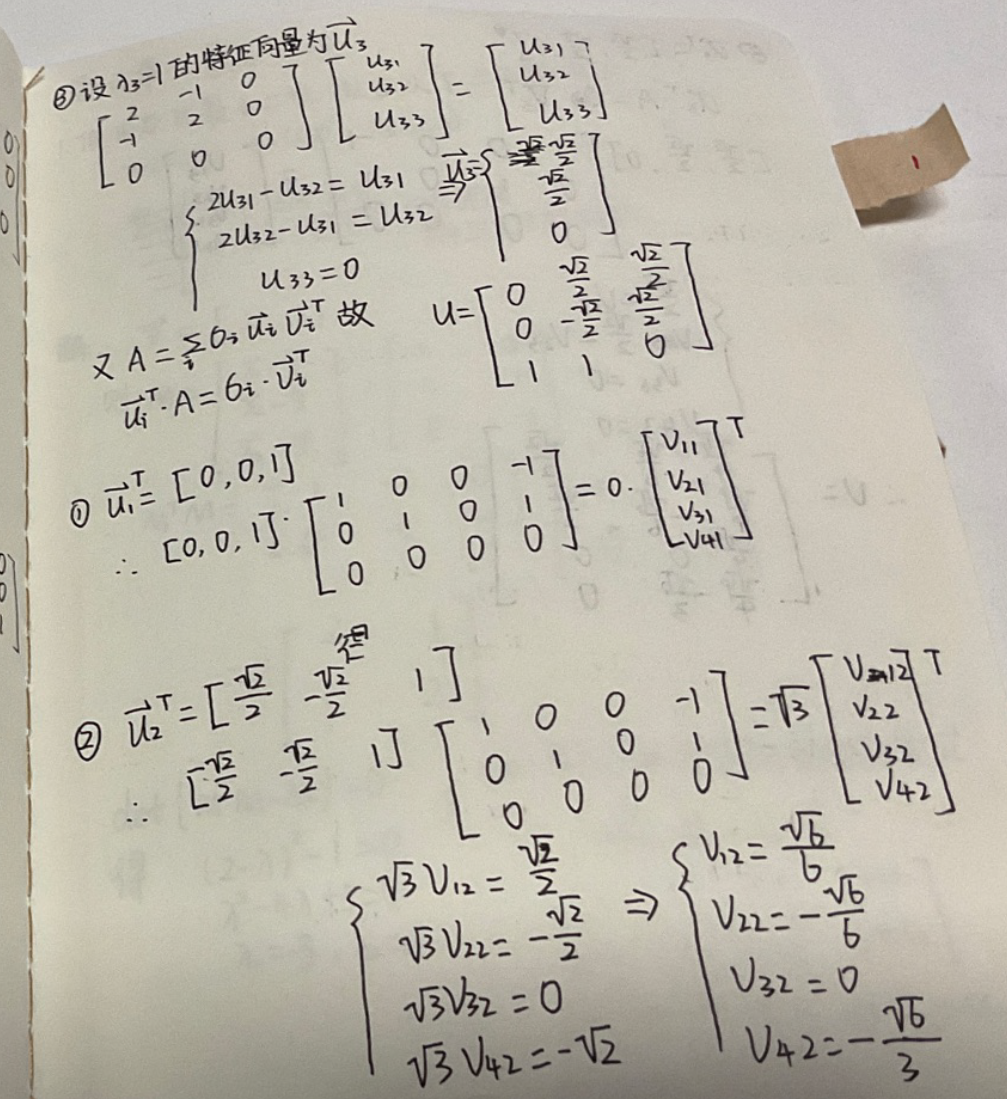 ③设 λ₃=1 的特征向量为 u⃗₃
[2 -1 0; -1 2 0; 0 0 0] [u₃₁; u₃₂; u₃₃] = [u₃₁; u₃₂; u₃₃]
{2u₃₁-u₃₂=u₃₁ ⇒ u⃗₃= [√2/2; √2/2; 0]
2u₃₂-u₃₁=u₃₂
u₃₃=0
又 A=∑ᵢ σᵢ u⃗ᵢ v⃗ᵢᵀ 故 U=[0 √2/2 √2/2; 0 -√2/2 √2/2; 1 1 0]
u⃗ᵢᵀ·A=σᵢ·v⃗ᵢᵀ
① u⃗₁ᵀ=[0,0,1]
∴ [0,0,1]·[1 0 0 -1; 0 1 0 1; 0 0 0 0]=0·[v₁₁; v₂₁; v₃₁; v₄₁]ᵀ
得
② u⃗₂ᵀ=[√2/2 -√2/2 1]
∴ [√2/2 -√2/2 1] [1 0 0 -1; 0 1 0 1; 0 0 0 0]=√3[v₁₂; v₂₂; v₃₂; v₄₂]ᵀ
{√3v₁₂=√2/2 ⇒ {v₁₂=√6/6
√3v₂₂=-√2/2 v₂₂=-√6/6
√3v₃₂=0 v₃₂=0
√3v₄₂=-√2 v₄₂=-√6/3